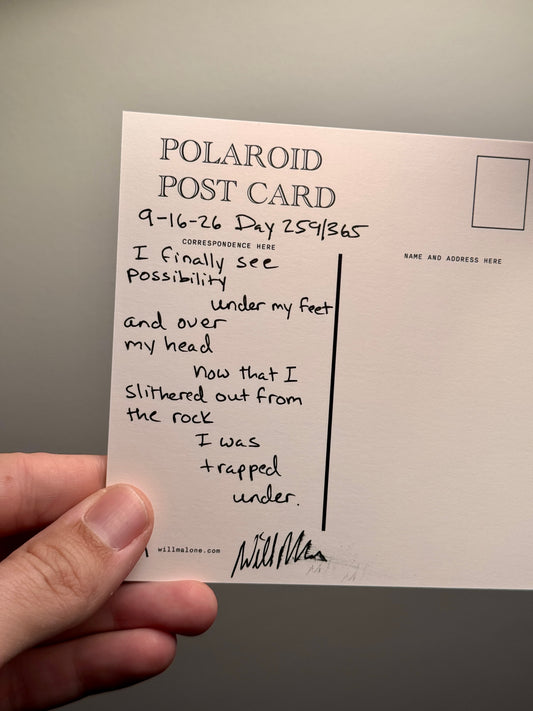 POLAROID
POST CARD
9-16-26 Day 259/365
CORRESPONDENCE HERE
NAME AND ADDRESS HERE
I finally see
possibility
under my feet
and over
my head
now that I
slithered out from
the rock
I was
trapped
under.
willmalone.com